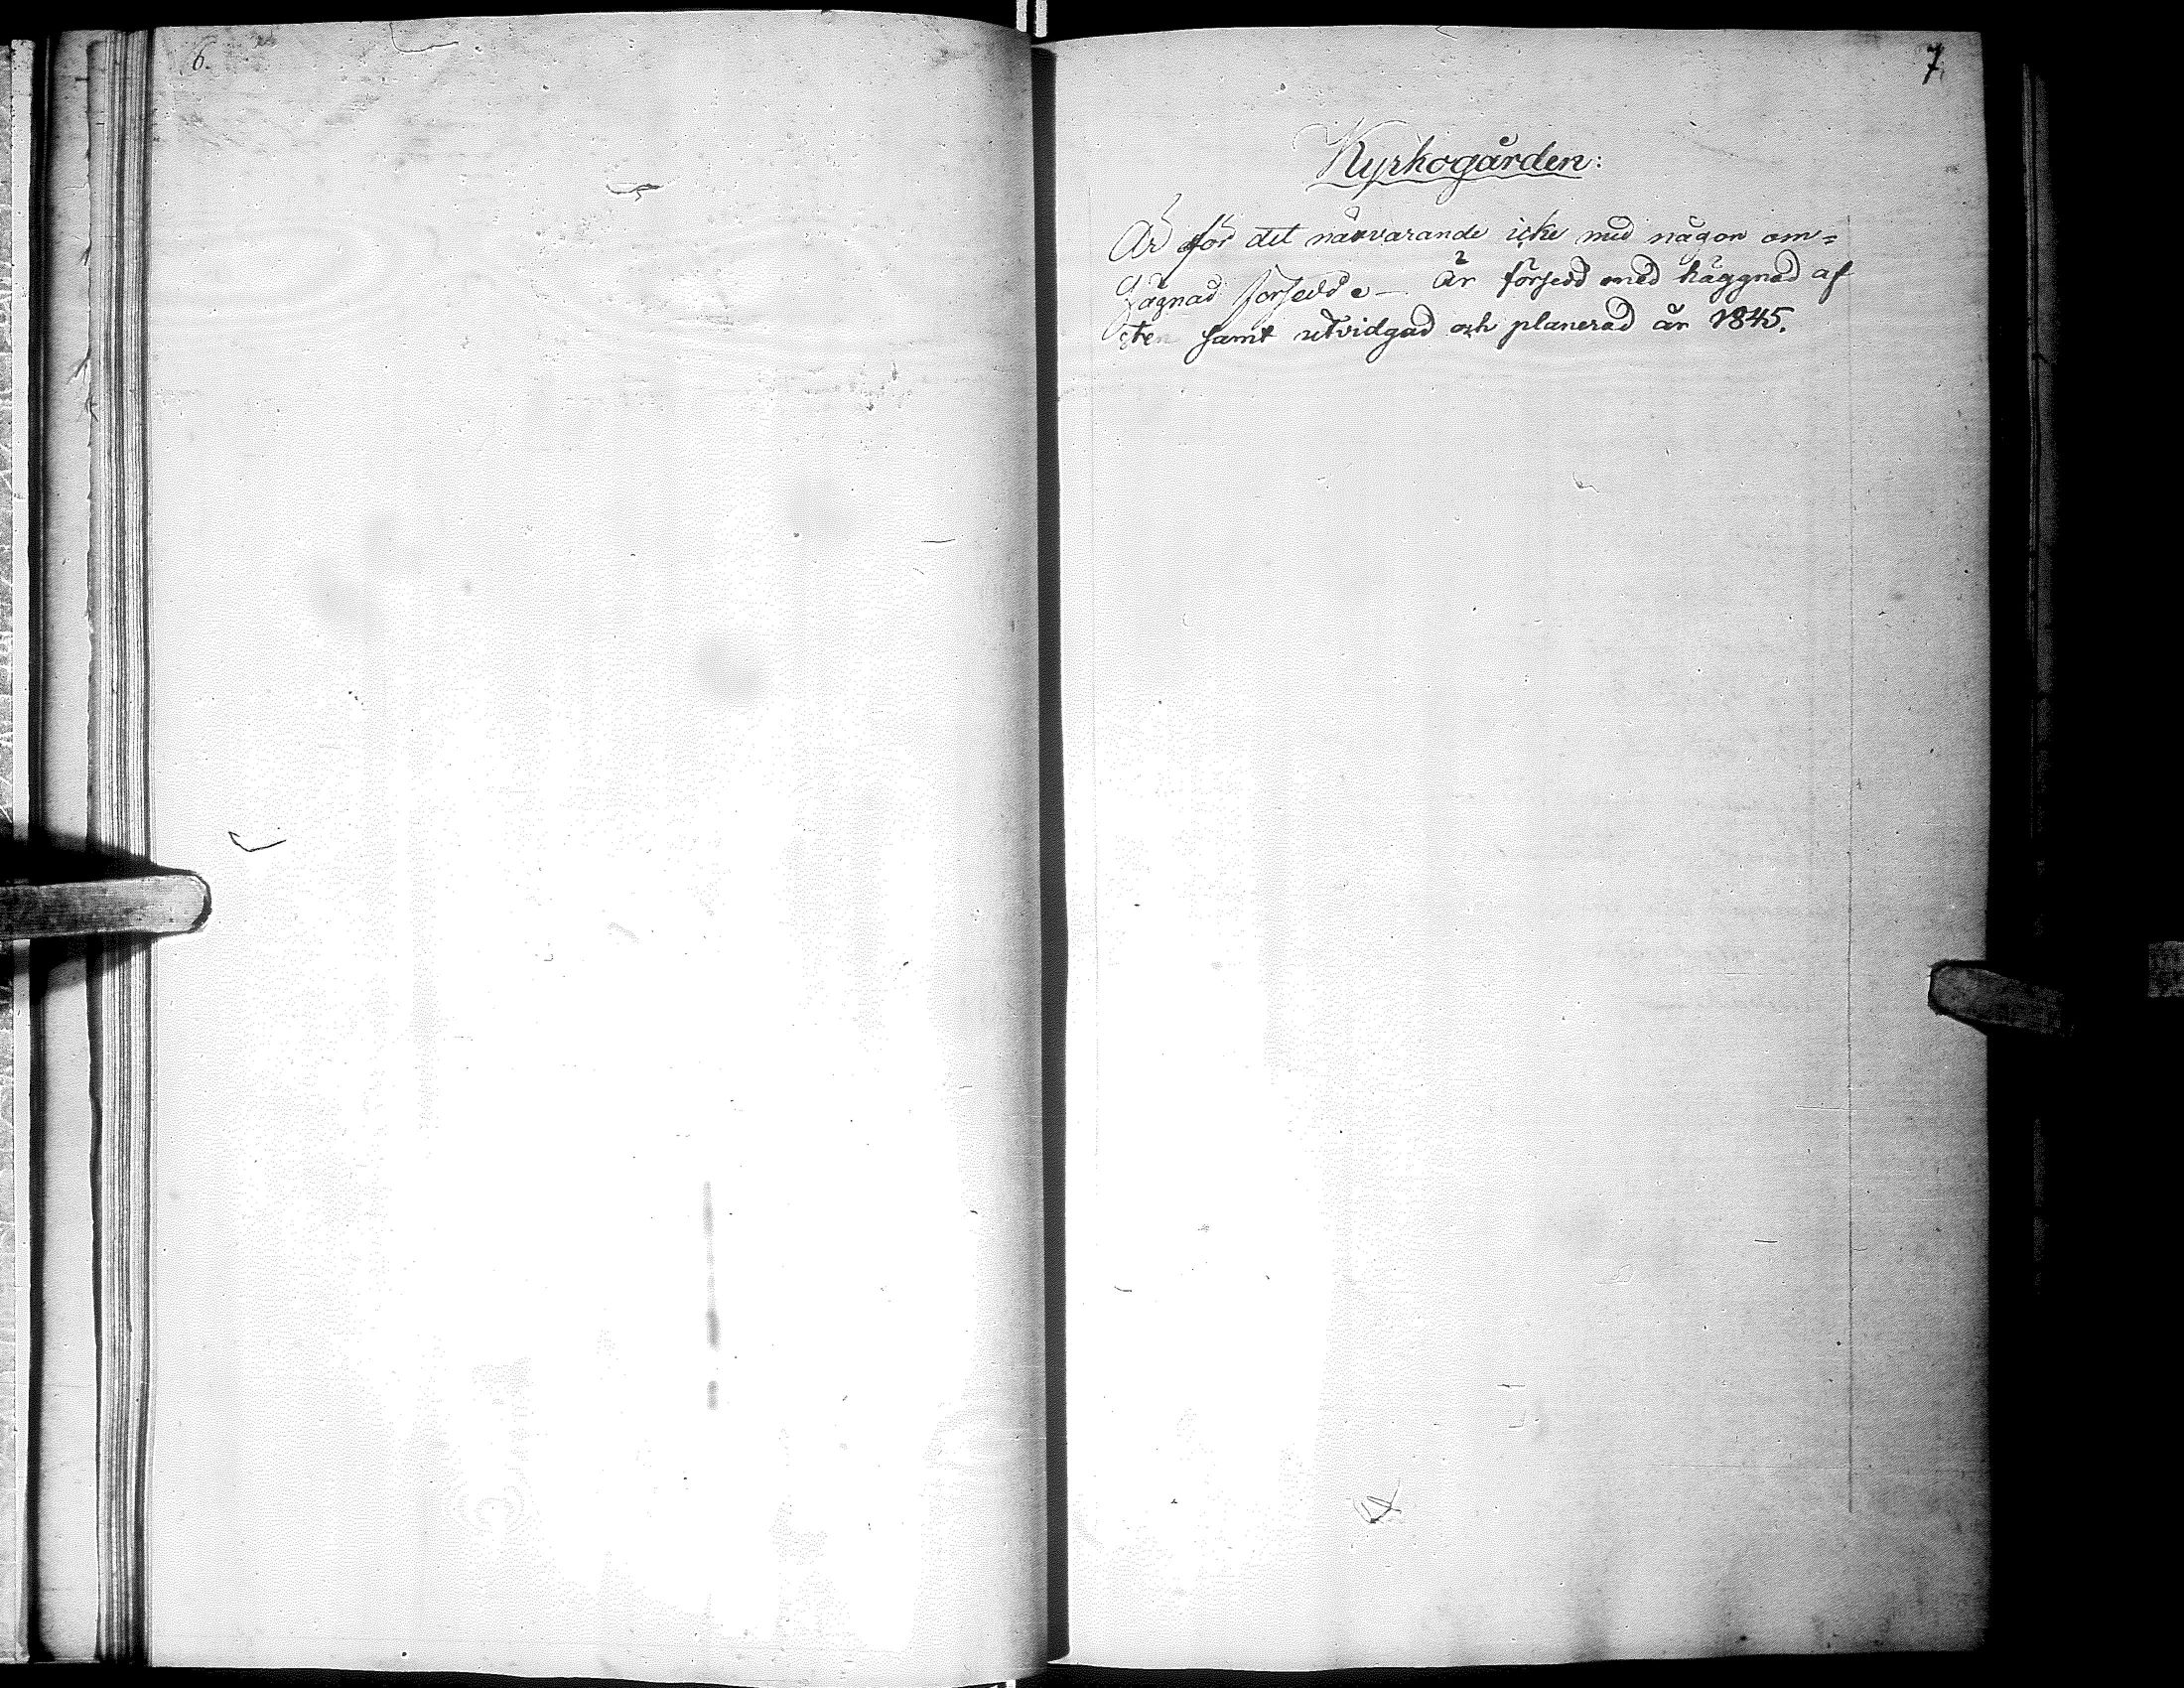 6.
7.
Kyrkogården:
Är för det närvarande icke med någon om=
hägnad försedd e — Är försedd med häggnad af
sten samt utvidgad och planerad år 1845.